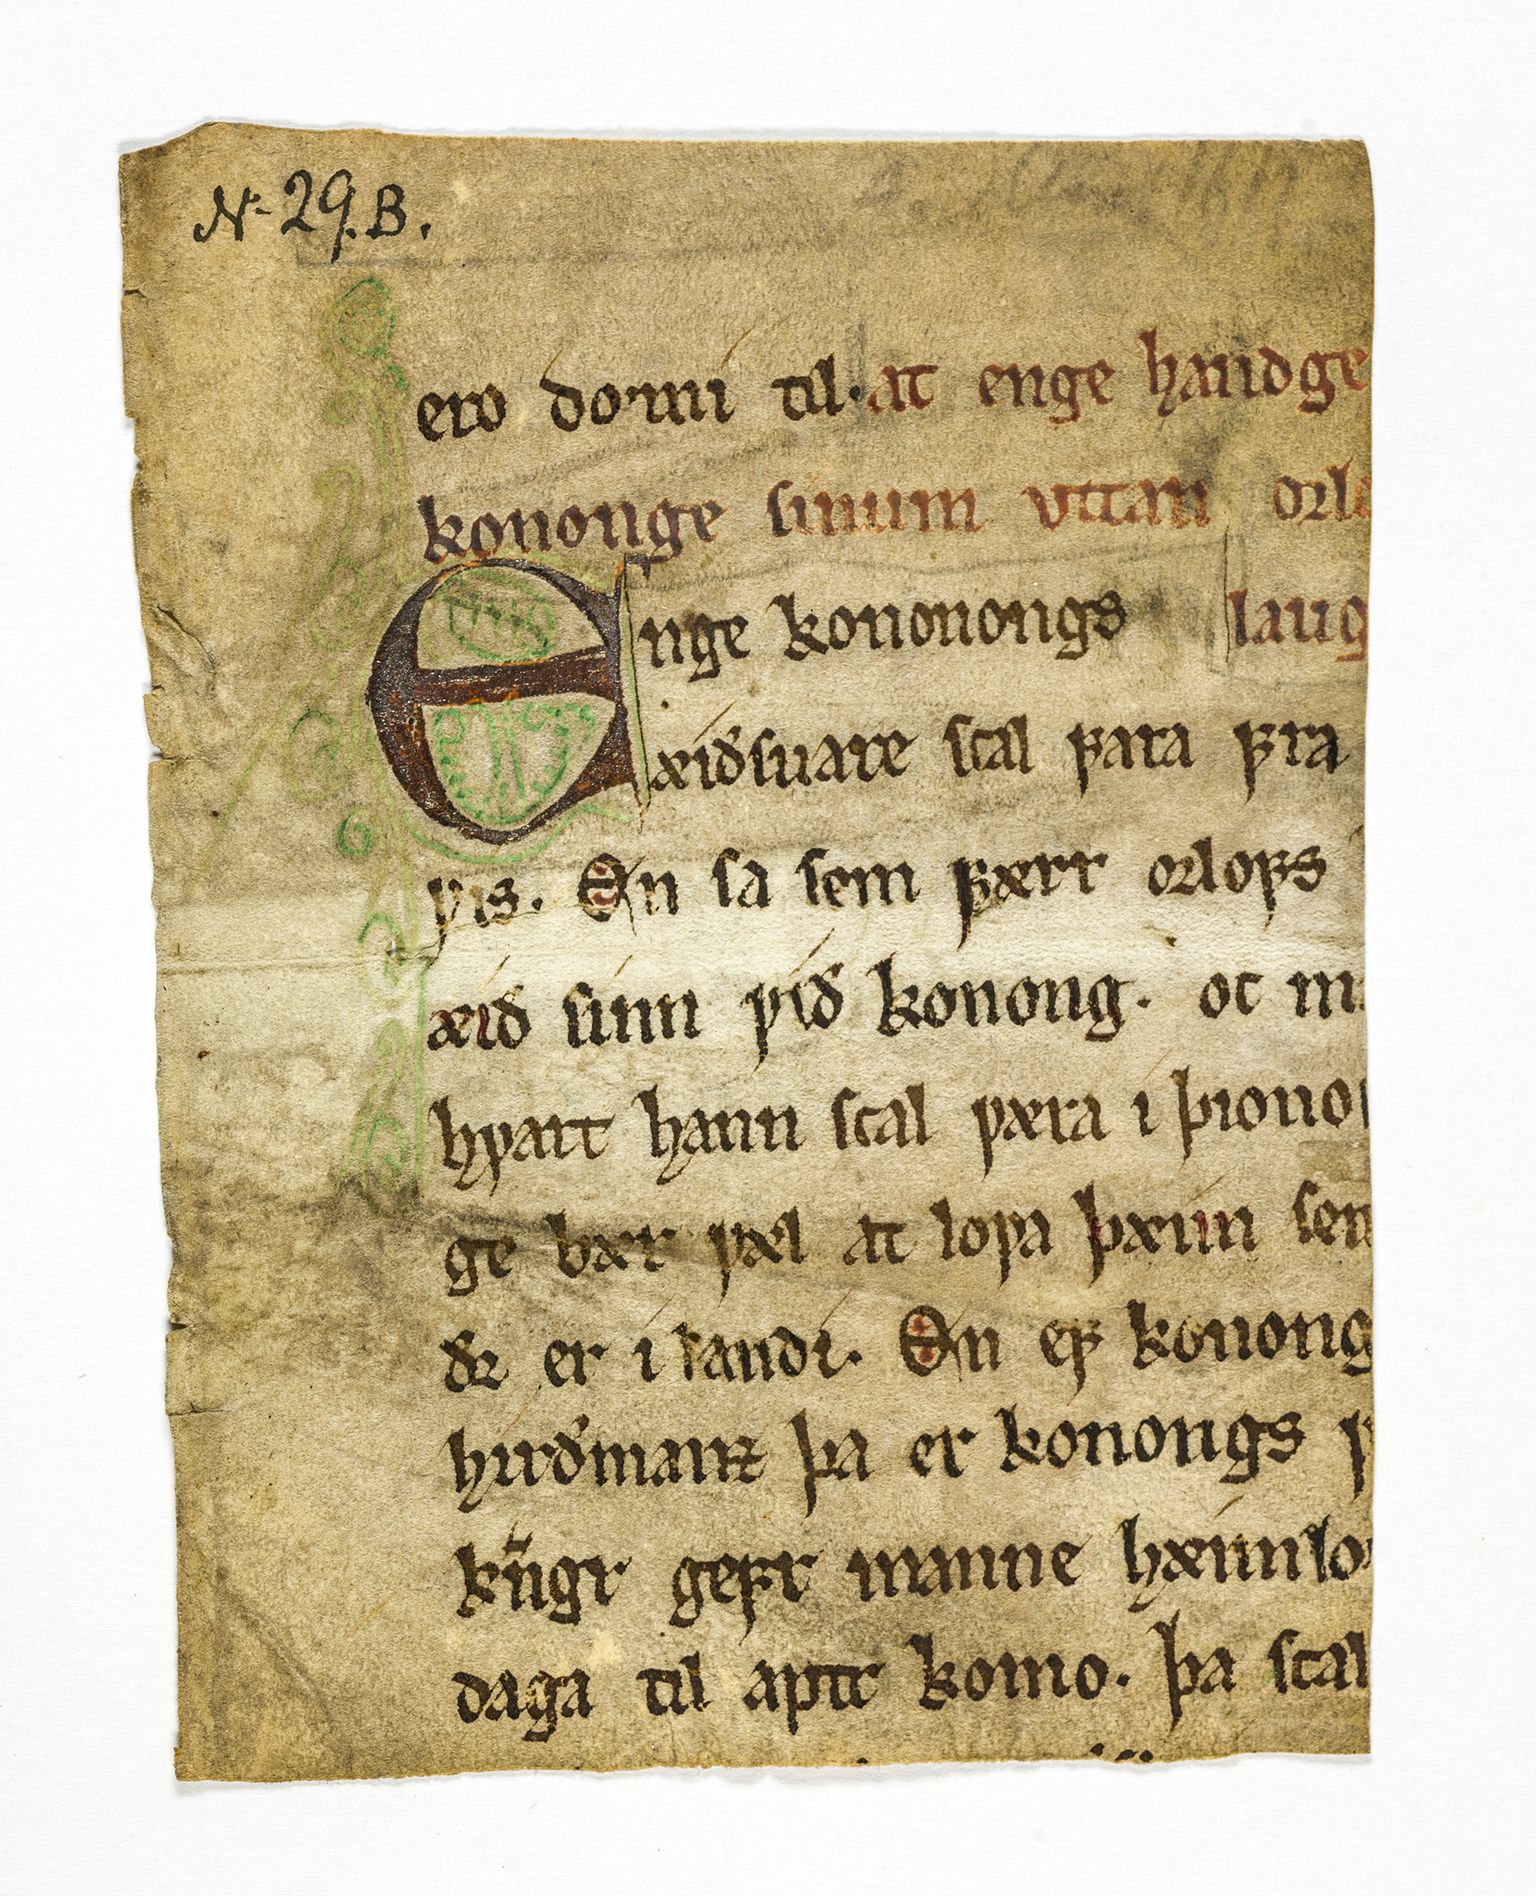 No 29. B.
ero domi til. at enge handge
kononge sinum vttan orlo
Enge konongs laug
æiðsuare scal fara fra
vis. En sa sem færr orlofs
æið sinn við konong. oc
hvart hann scal væra i þiono
ge bær væl at lova þæim sem
ðꝛ er i landi. En ef konong
hirðmanꝛ þa er konongs
kn̄gr gefr manne hæimlo
daga til aptr komo. þa scal